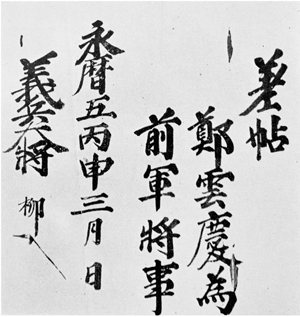 差帖
鄭雲慶為
前軍將事
永曆五丙申三月 日
義兵將 柳